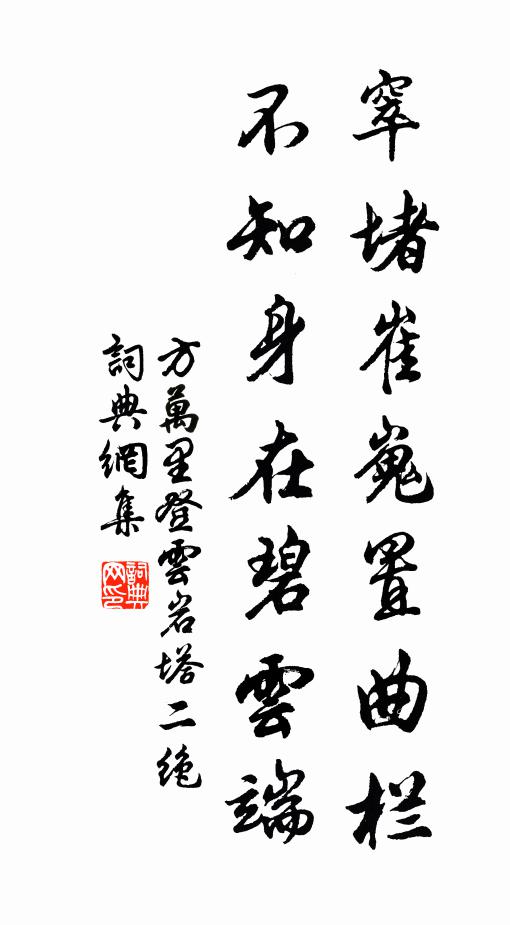 窣堵崔嵬置曲栏
不知身在碧雲端
方萬里登雲岩塔二绝
詞典網集
詞典网印